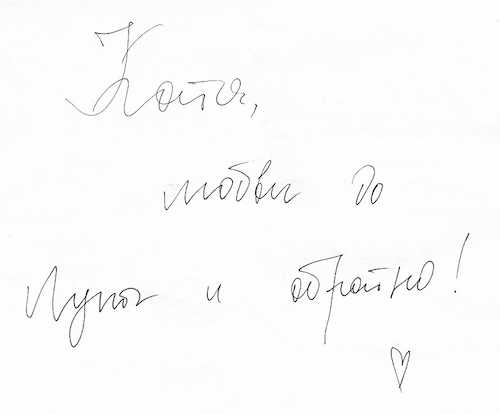 Катя,
любви до
Луны и обратно!
♡